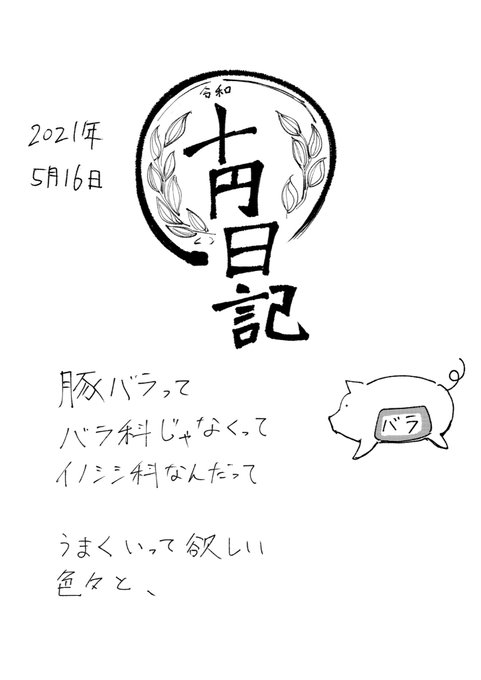 2021年
5月16日
令和
十円日記
豚バラって
バラ科じゃなくって
イノシシ科なんだって
バラ
うまくいって欲しい
色々と、